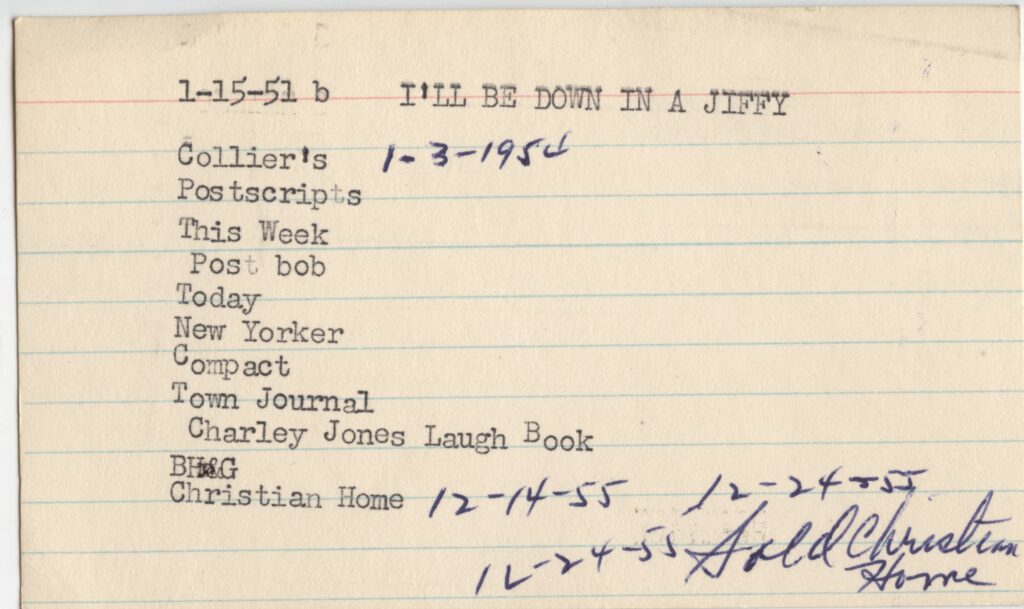 1-15-51 b I'LL BE DOWN IN A JIFFY
Collier's 1-3-1954
Postscripts
This Week
Post bob
Today
New Yorker
Compact
Town Journal
Charley Jones Laugh Book
BH&G
Christian Home 12-14-55 12-24-55
12-24-55 Sold Christian
Home